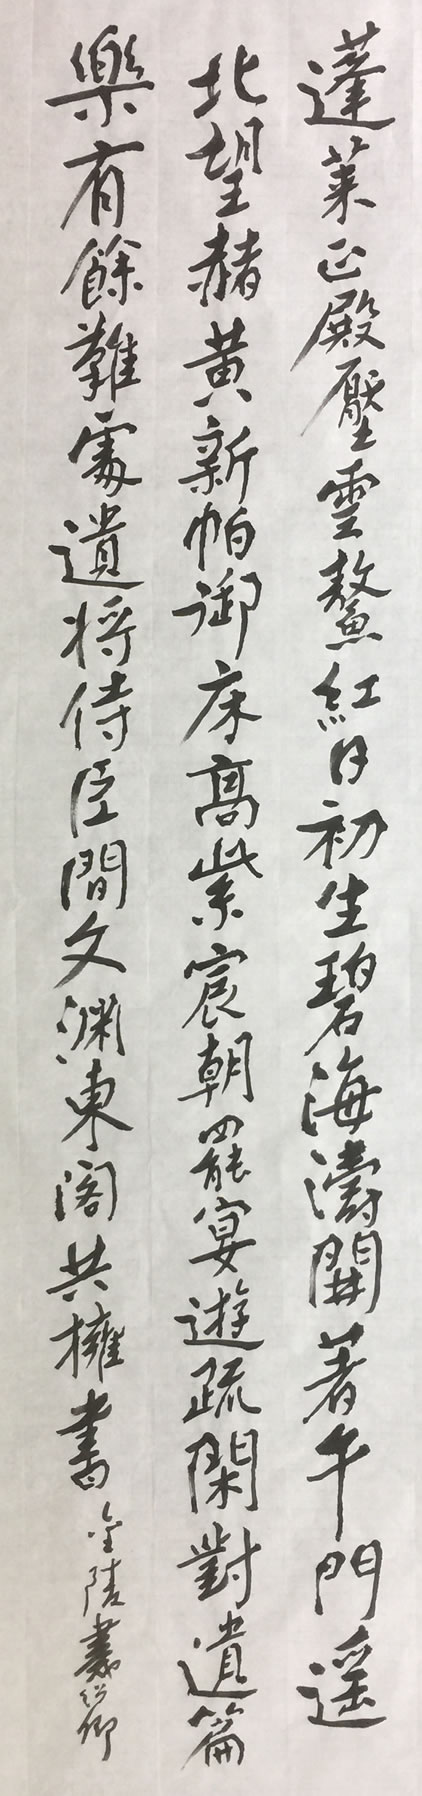 蓬萊正殿壓雲鰲紅日初生碧海濤開著午門遥
北望赭黄新帕御床高紫宸朝罷宴遊疏閑對遺篇
樂有餘難處遺將侍臣間文淵東閣共擁書 金陵